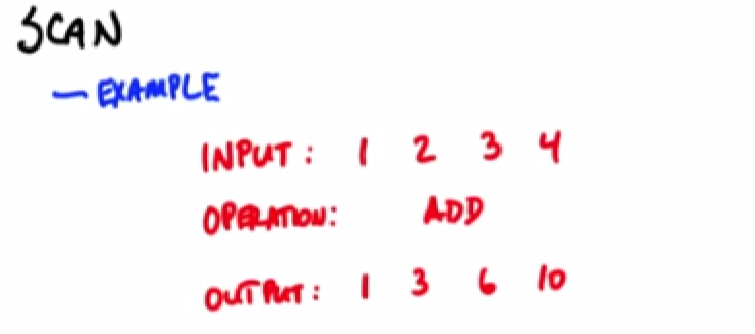 SCAN
- EXAMPLE
INPUT: 1 2 3 4
OPERATION: ADD
OUTPUT: 1 3 6 10